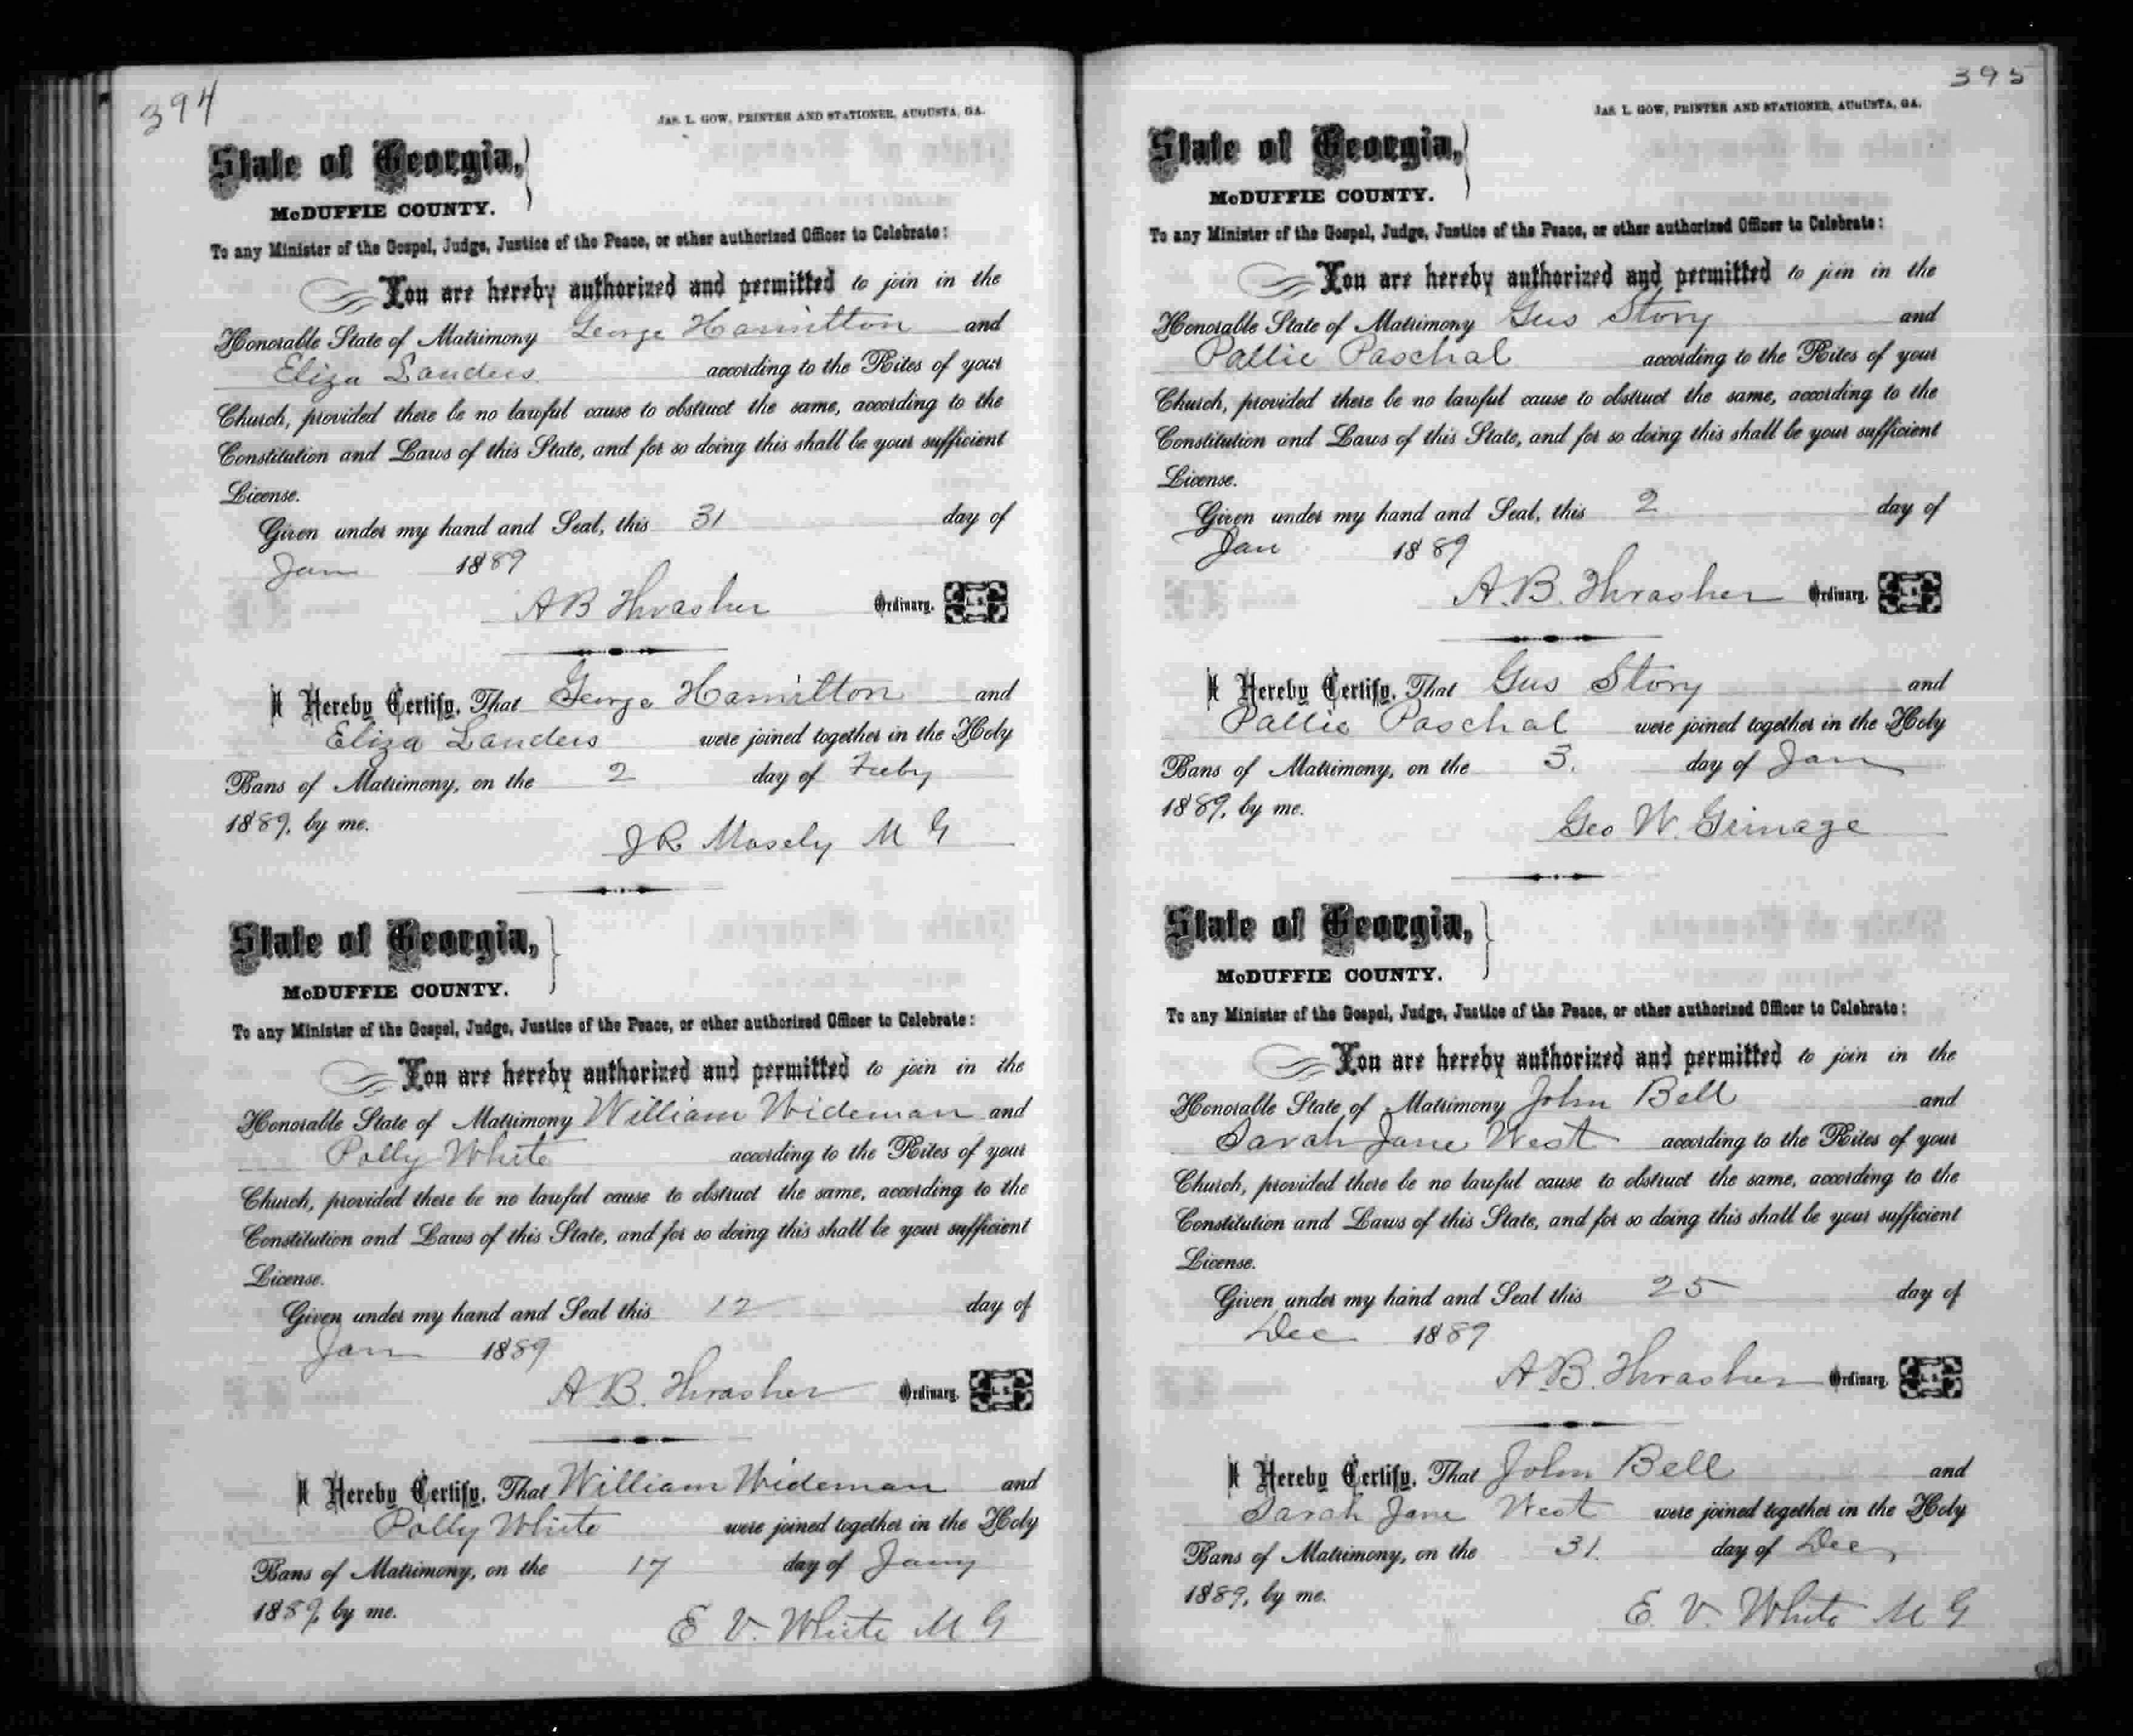 394
JAS. L. GOW, PRINTER AND STATIONER, AUGUSTA, GA.
State of Georgia,
McDUFFIE COUNTY.
To any Minister of the Gospel, Judge, Justice of the Peace, or other authorized Officer to Celebrate:
You are hereby authorized and permitted to join in the
Honorable State of Matrimony George Hamilton and
Eliza Landers according to the Rites of your
Church, provided there be no lawful cause to obstruct the same, according to the
Constitution and Laws of this State, and for so doing this shall be your sufficient
License.
Given under my hand and Seal, this 31 day of
Jan 1889
A B Thrasher Ordinary. L. S.
I Hereby Certify, That George Hamilton and
Eliza Landers were joined together in the Holy
Bans of Matrimony, on the 2 day of Feby
1889, by me.
J R Mosely M G
State of Georgia,
McDUFFIE COUNTY.
To any Minister of the Gospel, Judge, Justice of the Peace, or other authorized Officer to Celebrate:
You are hereby authorized and permitted to join in the
Honorable State of Matrimony William Wideman and
Polly White according to the Rites of your
Church, provided there be no lawful cause to obstruct the same, according to the
Constitution and Laws of this State, and for so doing this shall be your sufficient
License.
Given under my hand and Seal this 12 day of
Jan 1889
A. B. Thrasher Ordinary. L. S.
I Hereby Certify, That William Wideman and
Polly White were joined together in the Holy
Bans of Matrimony, on the 17 day of Jany
1889, by me.
E. V. White M. G
395
JAS. L. GOW, PRINTER AND STATIONER, AUGUSTA, GA.
State of Georgia,
McDUFFIE COUNTY.
To any Minister of the Gospel, Judge, Justice of the Peace, or other authorized Officer to Celebrate:
You are hereby authorized and permitted to join in the
Honorable State of Matrimony Gus Story and
Pallie Paschal according to the Rites of your
Church, provided there be no lawful cause to obstruct the same, according to the
Constitution and Laws of this State, and for so doing this shall be your sufficient
License.
Given under my hand and Seal, this 2 day of
Jan 1889
A. B. Thrasher Ordinary. L. S.
I Hereby Certify, That Gus Story and
Pallie Paschal were joined together in the Holy
Bans of Matrimony, on the 3. day of Jan
1889, by me.
Geo W. Grinage
State of Georgia,
McDUFFIE COUNTY.
To any Minister of the Gospel, Judge, Justice of the Peace, or other authorized Officer to Celebrate:
You are hereby authorized and permitted to join in the
Honorable State of Matrimony John Bell and
Sarah Jane West according to the Rites of your
Church, provided there be no lawful cause to obstruct the same, according to the
Constitution and Laws of this State, and for so doing this shall be your sufficient
License.
Given under my hand and Seal this 25 day of
Dec 1889
A. B. Thrasher Ordinary. L. S.
I Hereby Certify, That John Bell and
Sarah Jane West were joined together in the Holy
Bans of Matrimony, on the 31. day of Dec
1889, by me.
E. V. White M G